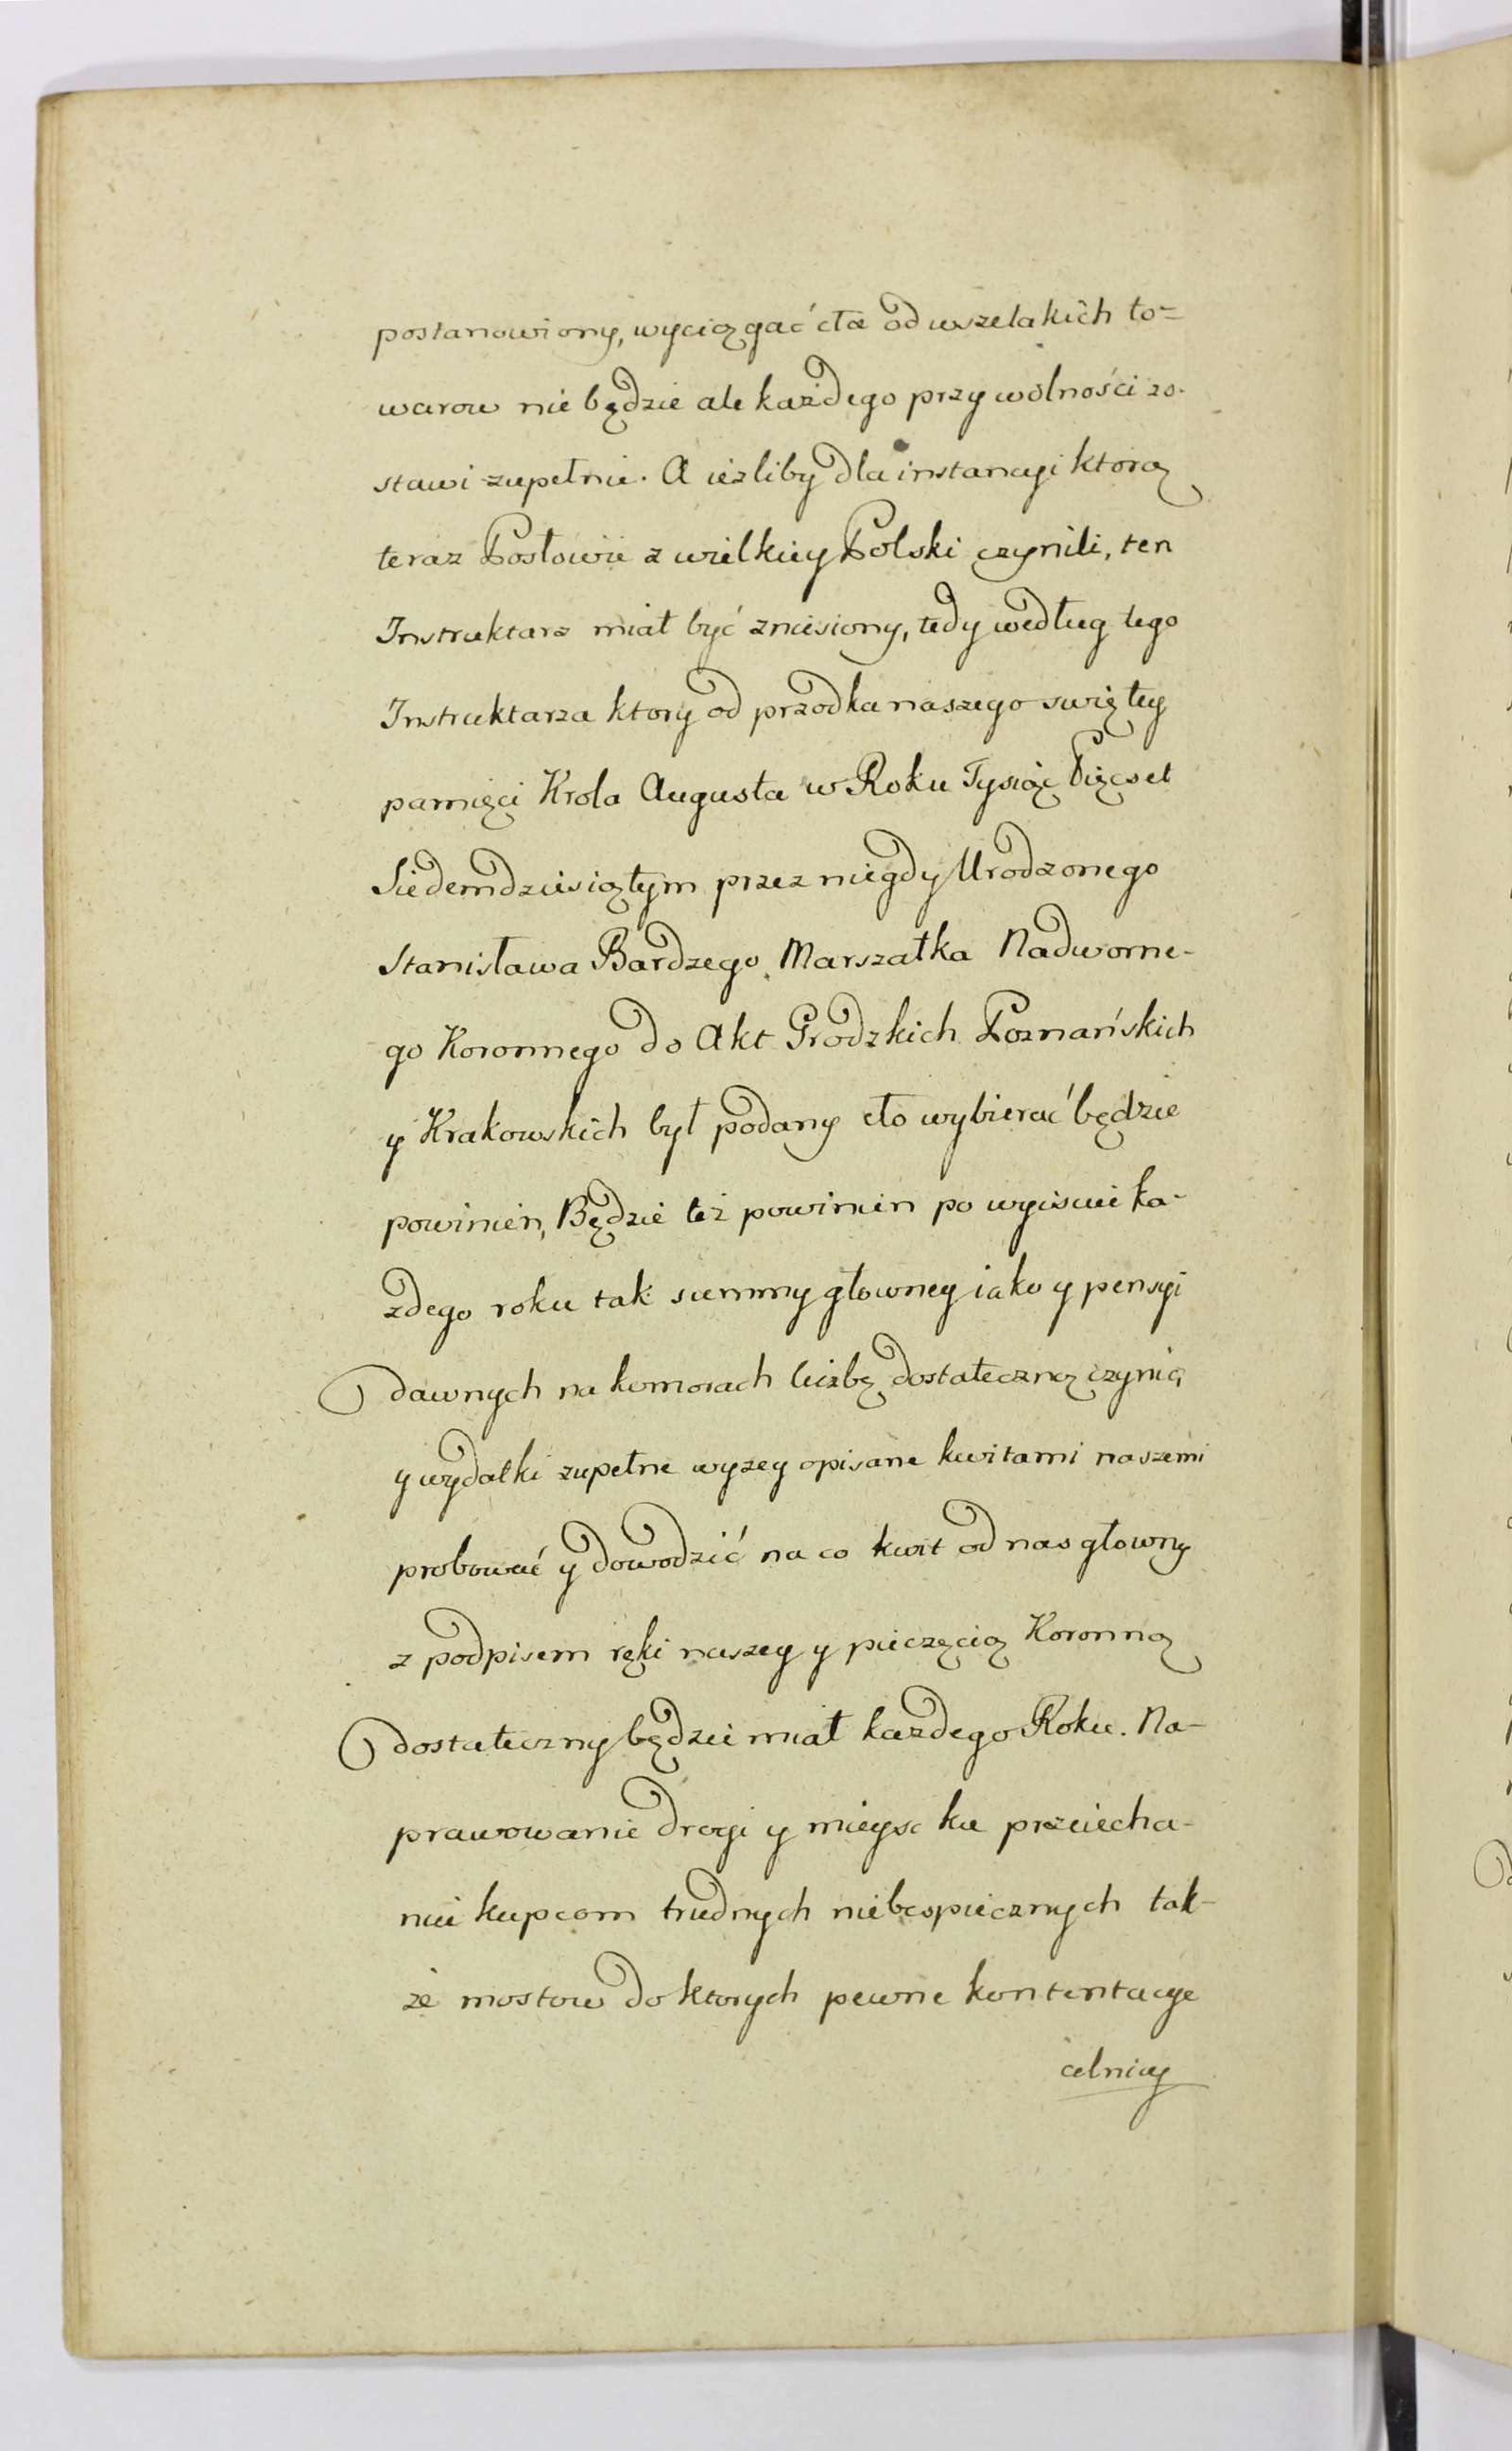 postanowiony, wyciągać cła od wszelakich to=
warow nie będzie ale każdego przy wolności zo-
stawi zupełnie. A ieżliby dla instancyi ktorą
teraz Posłowie z wielkiey Polski czynili, ten
Instruktarz miał być zniesiony, tedy według tego
Instruktarza ktory od przodka naszego swiętey
pamięci Krola Augusta w Roku Tysiąc Pięcset
Siedemdziesiątym przez niegdy Urodzonego
Stanisława Bardzego Marszałka Nadworne-
go Koronnego do Akt Grodzkich Poznańskich
y Krakowskich był podany cło wybierać będzie
powinien, Będzie też powinien po wyisciu ka-
zdego roku tak summy głowney iako y pensyi
dawnych na komorach liczbę dostateczną czynić
y wydatki zupełne wyzey opisane kwitami naszemi
probować y dowodzić na co kwit od nas głowny
z podpisem ręki naszey y pieczęcią Koronną
dostateczny będzie miał kazdego Roku. Na-
prawowanie drogi y mieysc ku przeiecha-
niu kupcom trudnych niebespiecznych tak-
że mostow do ktorych pewne kontentacye
celnicy